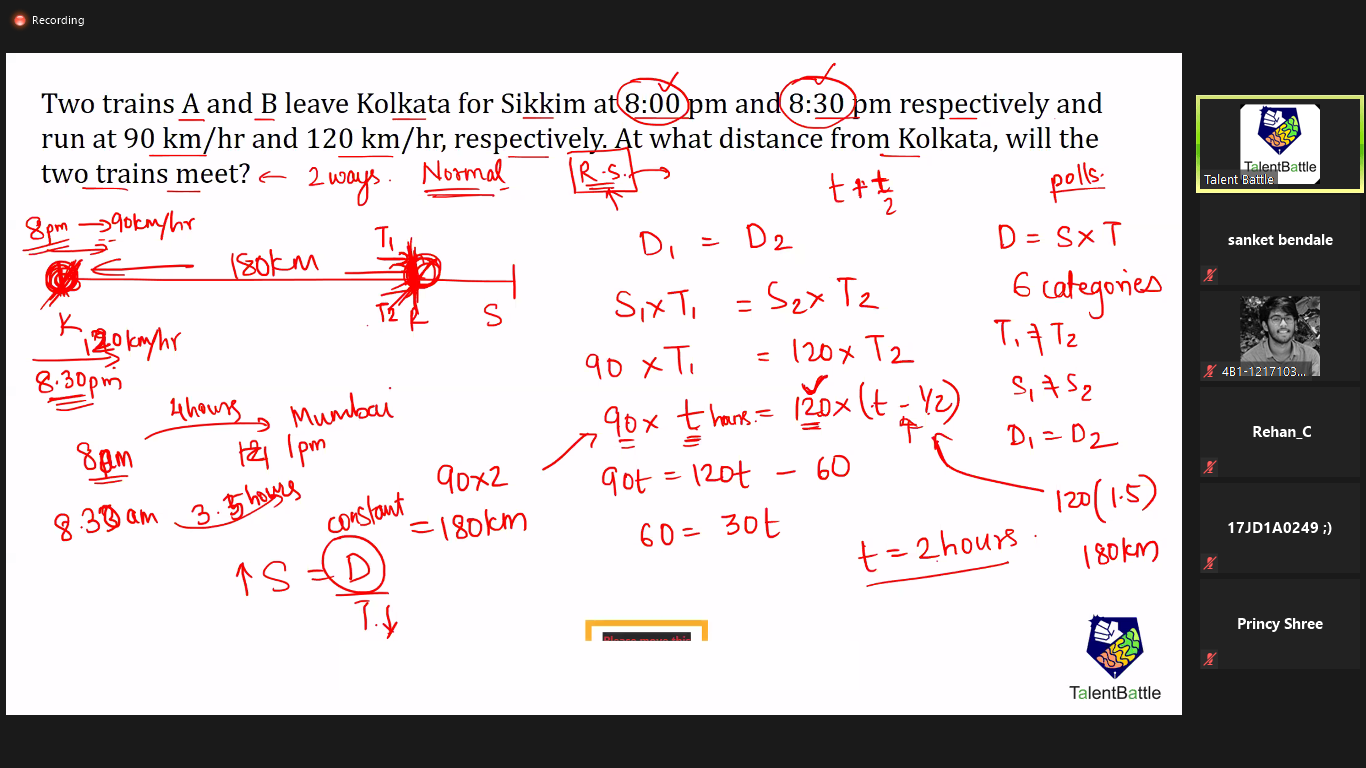 Recording
Two trains A and B leave Kolkata for Sikkim at 8:00 pm and 8:30 pm respectively and
run at 90 km/hr and 120 km/hr, respectively. At what distance from Kolkata, will the
two trains meet? ← 2 ways. Normal R.S. →
t + t/2
polls.
8pm → 90km/hr
180KM
T1
T2
K
S
120km/hr
8.30pm
4hours
Mumbai
1pm
8.30 am
3.5hours
90x2
= 180KM
constant
↑ S = D
T ↓
D1 = D2
S1 x T1 = S2 x T2
90 x T1 = 120 x T2
90 x t hours = 120 x (t - 1/2)
90t = 120t - 60
60 = 30t
t = 2 hours
D = S x T
6 categories
T1 ≠ T2
S1 ≠ S2
D1 = D2
120(1.5)
180km
TalentBattle
TalentBattle
Talent Battle
sanket bendale
4B1-1217103...
Rehan_C
17JD1A0249 ;)
Princy Shree